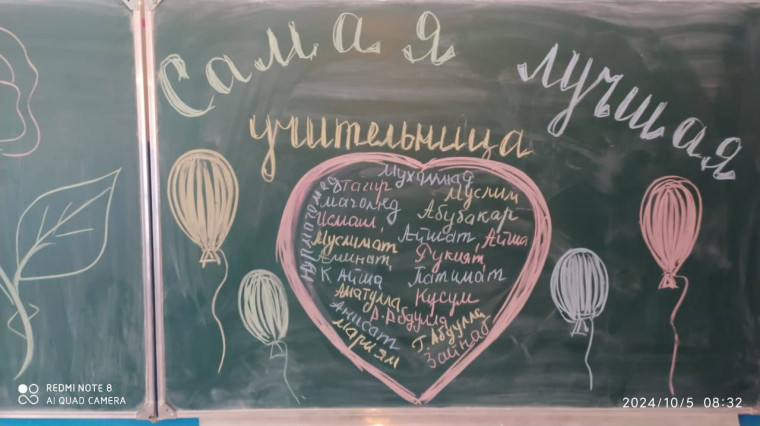 Самая лучшая
учительница
Мухаммад
Тагир
Муслим
Магомед
Абубакар
Исмаил
Нурмагомед
Айшат Айша
Муслимат
Рукият
Аминат
К Айша Патимат
Аматулла
Кусум
Р. Абдулла
Анисат
Г Абдулла
Мариям
Зайнаб
REDMI NOTE 8
AI QUAD CAMERA
2024/10/5 08:32